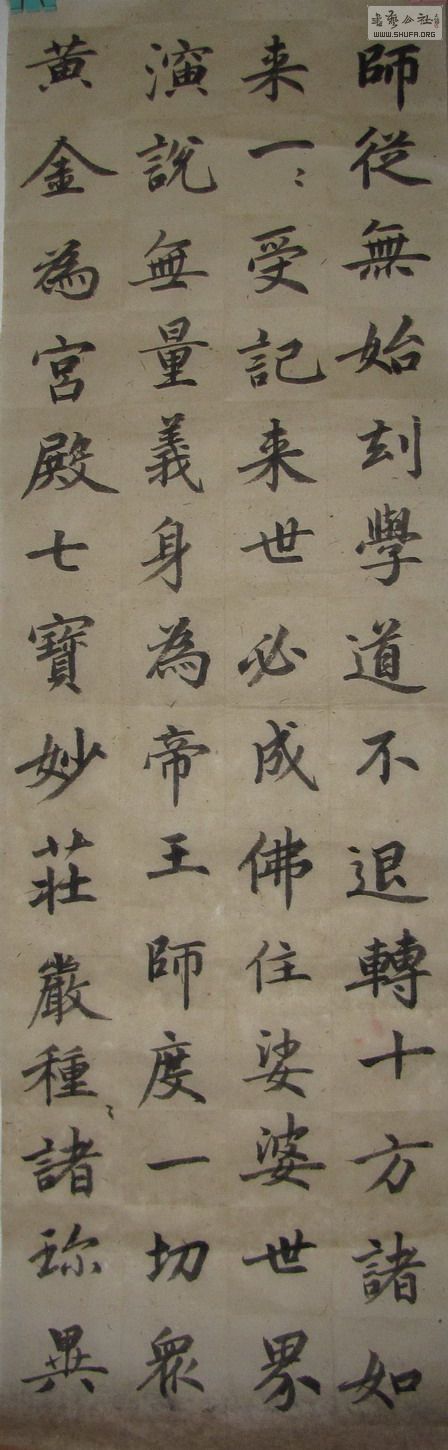 師從無始刻學道不退轉十方諸如
来一〻受記来世必成佛住娑婆世界
演說無量義身為帝王師度一切眾
黃金為宮殿七寶妙莊嚴種〻諸珎異
書藝公社
WWW.SHUFA.ORG